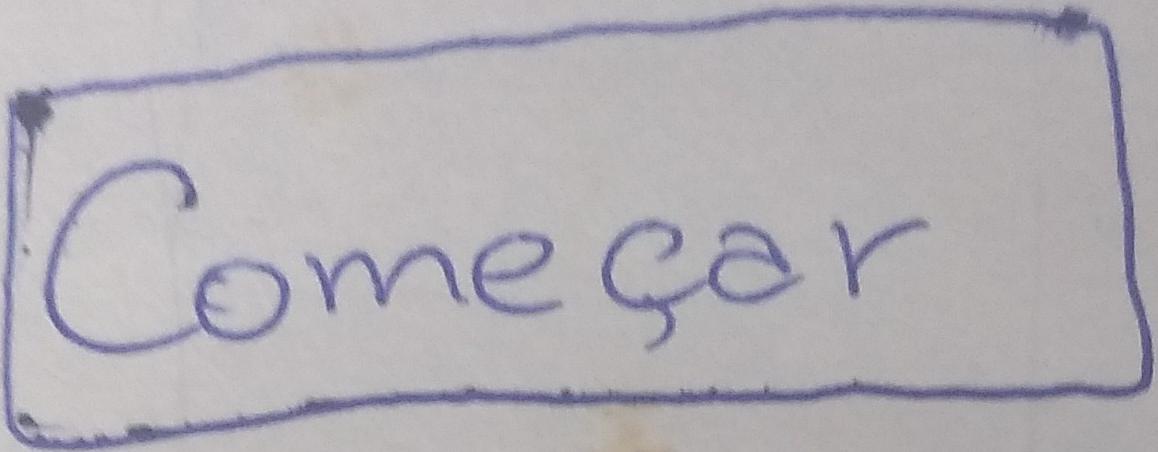 Começar